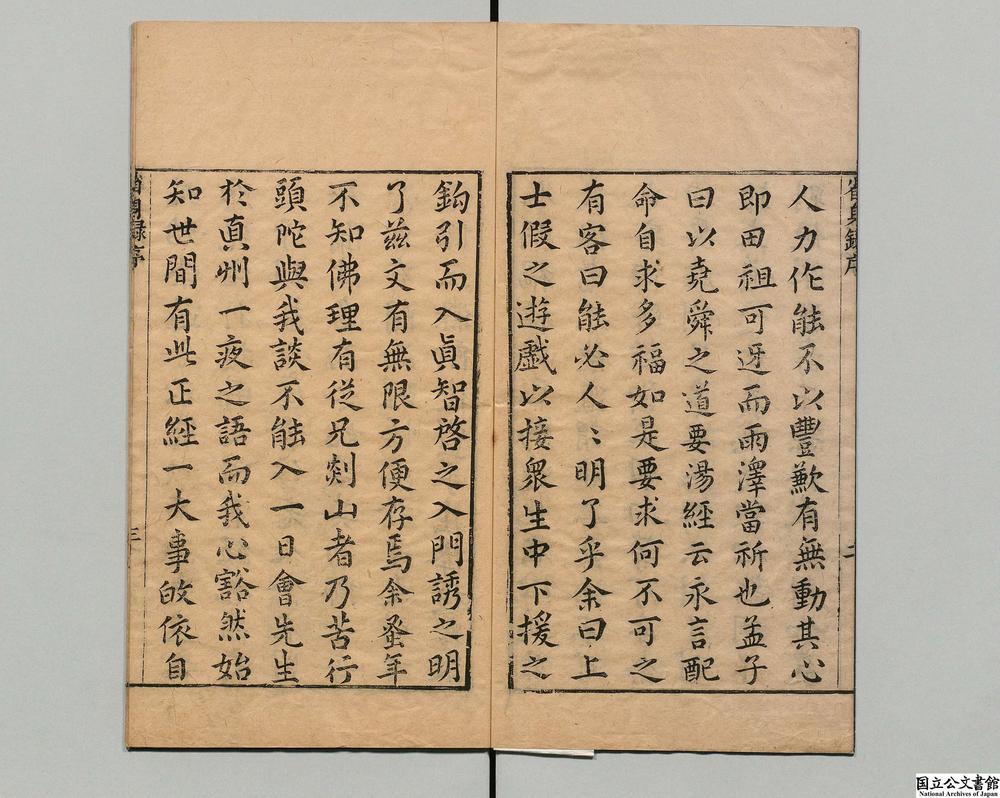 省身錄序
二
人力作能不以豐歉有無動其心
即田祖可迓而雨澤當祈也孟子
曰以堯舜之道要湯經云永言配
命自求多福如是要求何不可之
有客曰能必人〻明了乎余曰上
士假之遊戲以接眾生中下援之
鈎引而入眞智啓之入門誘之明
了兹文有無限方便存焉余蚤年
不知佛理有從兄剡山者乃苦行
頭陀與我談不能入一日會先生
於真州一夜之語而我心豁然始
知世間有此正經一大事皈依自
省身錄序
三
国立公文書館
National Archives of Japan